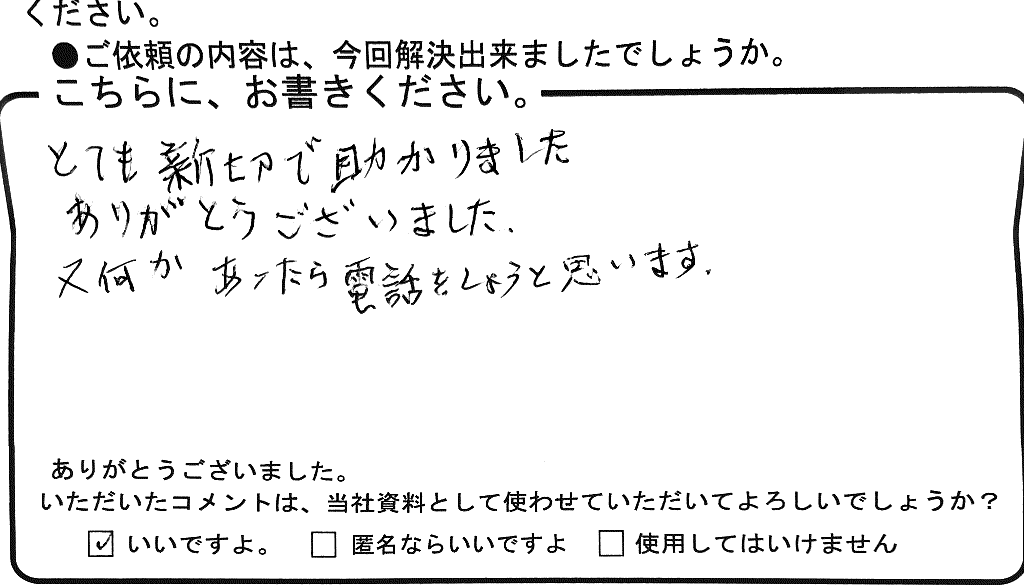 ください。
●ご依頼の内容は、今回解決出来ましたでしょうか。
こちらに、お書きください。
とても新切で助かりました
ありがとうございました.
又何かあったら電話をしようと思います.
ありがとうございました。
いただいたコメントは、当社資料として使わせていただいてよろしいでしょうか？
☑ いいですよ。 □ 匿名ならいいですよ □ 使用してはいけません